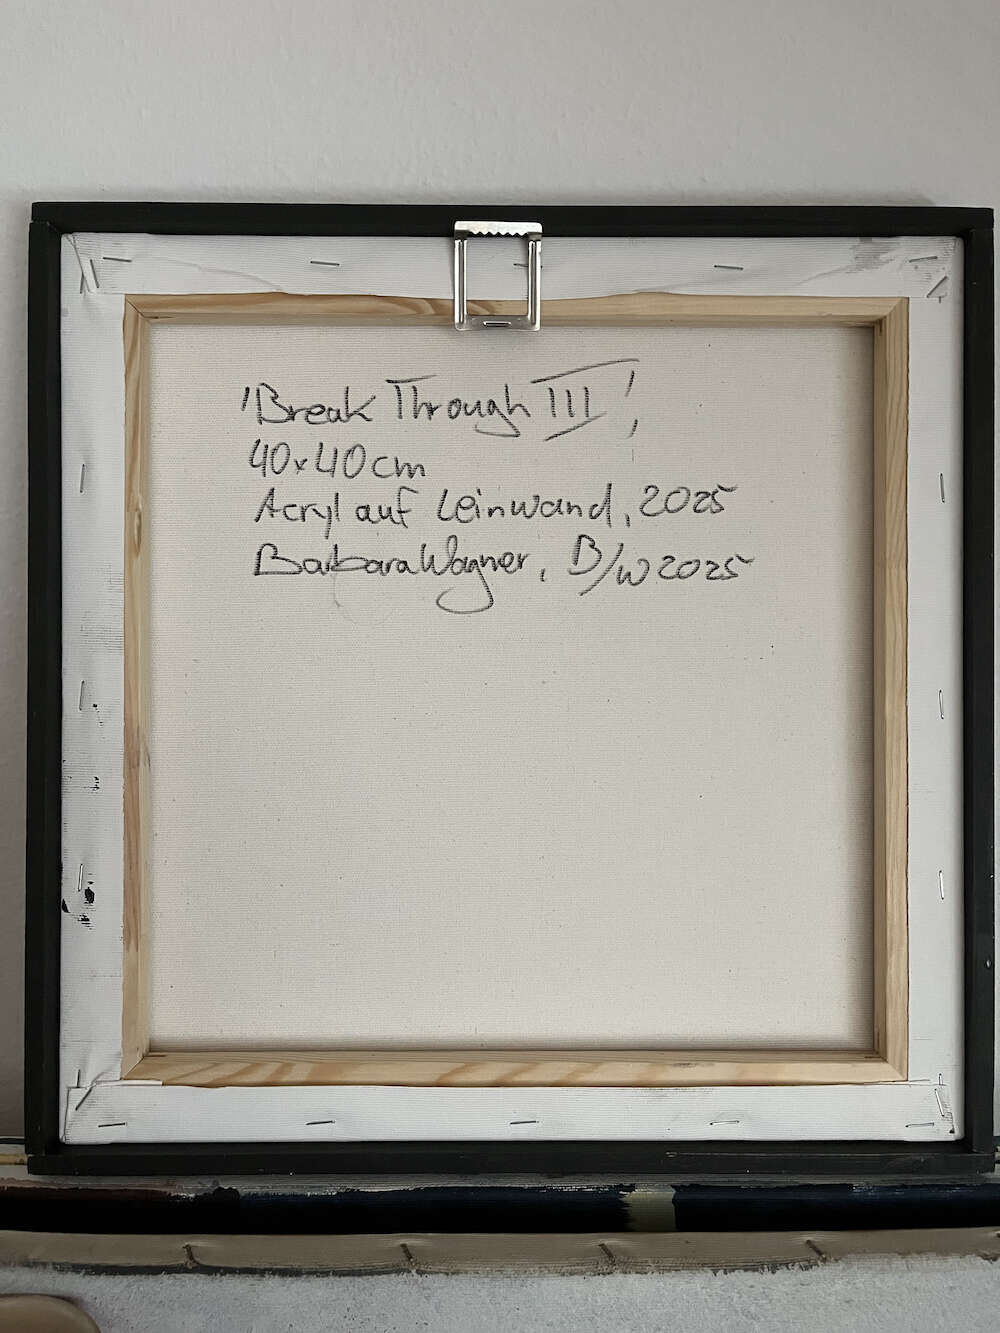 'Break Through III',
40x40cm
Acryl auf Leinwand, 2025
Barbara Wagner, B/W 2025